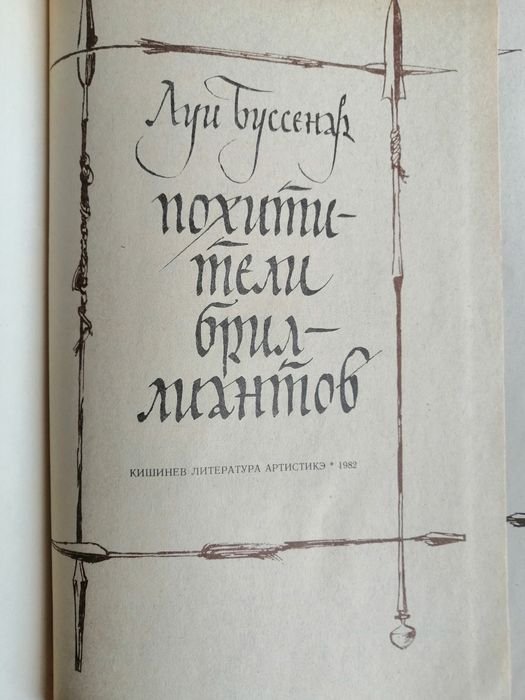 Луи Буссенар
похити-
тели
брил-
лиантов
КИШИНЕВ ЛИТЕРАТУРА АРТИСТИКЭ * 1982